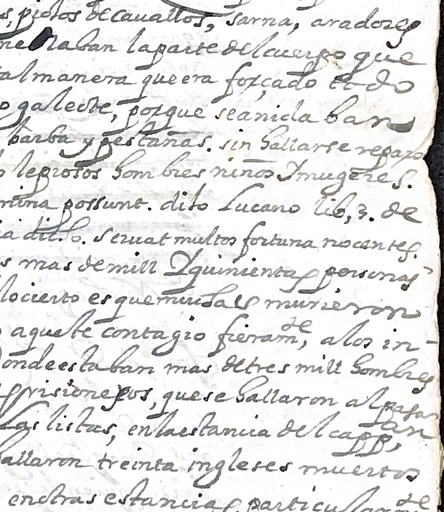 s, piojos de cavallos, sarna, aradores
ban la parte del cuerpo que
tal manera que era forçado
o galeote, porque se anida ban
barba y pestañas. sin hallarse reparo
leprosos hombres niños Y mugeres.
possunt. dijo Lucano lib, 3. de
dijo. servat multos fortuna nocentes.
s mas de mill Y quinientas personas
lo cierto es que muchas murieron
aqueste contagio fieramte, a los in-
donde estaban mas de tres mill hombres
prisioneros, que se hallaron al pasar
las listas, en la estancia del capp,an
hallaron treinta ingleses muertos
en otras estancias particular